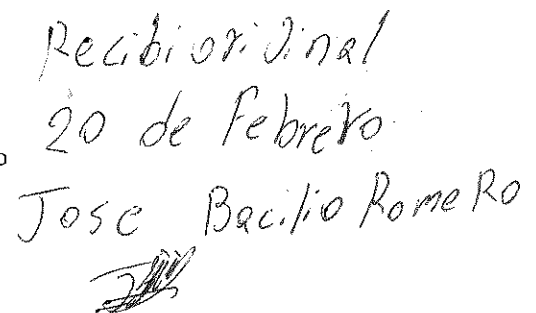 Recibi oriJinal
20 de Febrero
Jose Bacilio RomeRo